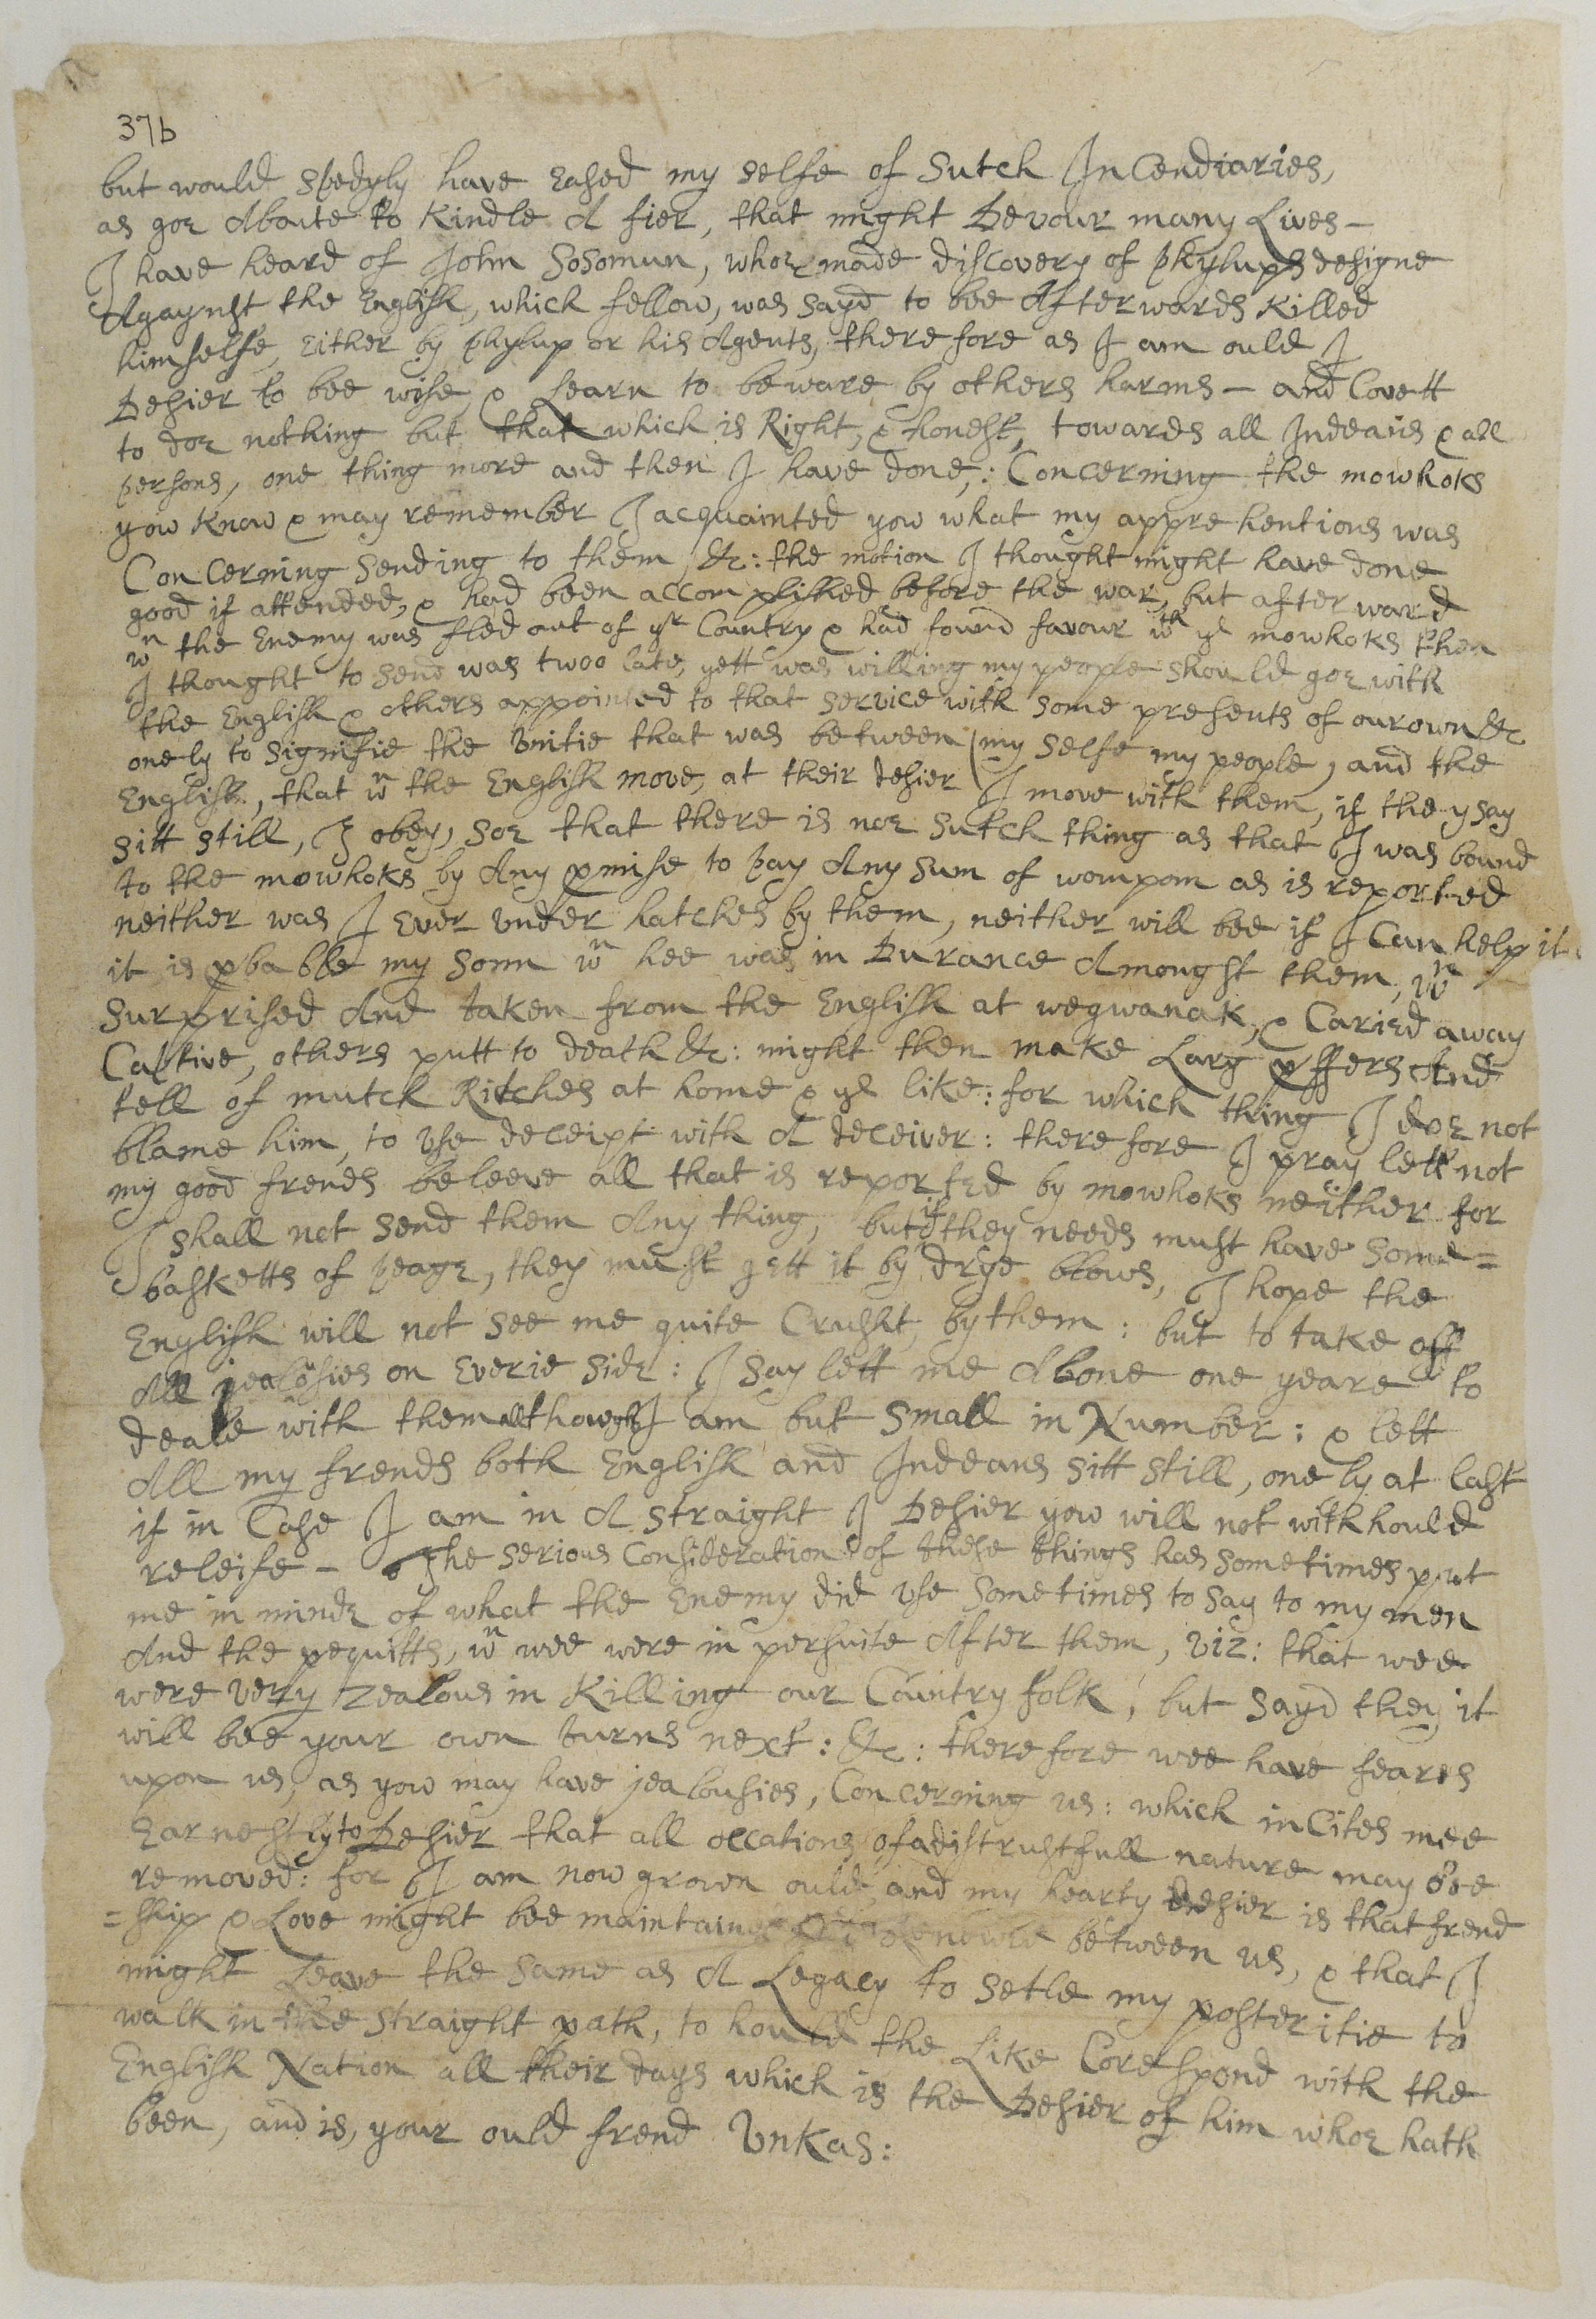 37b
but would spedyly have eased my selfe of Sutch Incendiaries,
as goe Aboute to Kindle A fier, that might Devour many Lives –
I have heard of John Sosomun, whoe made discovery of phylups designe
Agaynst the English, which fellow, was sayd to bee Afterwards Killed
himselfe, Either by phylup or his Agents, therefore as I am ould I
Desier to bee wise, & Learn to beware by others harms – and Covett
to doe nothing but that which is Right, & honest, towards all Indeans & all
persons, one thing more and then I have done,: Concerning the mowhoks
yow know & may remember I acquainted yow what my apprehentions was
Concerning Sending to them &c: the motion I thought might have done
good if attended, & had been accomplished before the war, but afterward
wn the Enemy was fled out of yr Country & had found favour wth ye mowhoks then
I thought to send was twoo late, yett was willing my people should goe with
the English & others appointed to that service with some presents of our own &c
onely to Signifie the Vnitie that was between my selfe my people, and the
English, that wn the English move, at their desier I move with them, if they say
sitt still, I obey, soe that there is noe sutch thing as that I was bound
to the mowhoks by Any pmise to pay Any Sum of wompom as is reported
neither was I Ever Vnder hatches by them, neither will bee if I Can help it
it is pbable my Sonn wn hee was in Durance Amongst them, wn
Surprised And taken from the English at wegwanak, & Caried away
Captive, others putt to death &c: might then make Larg pffers And
tell of mutch Ritches at home & ye like: for which thing I doe not
blame him, to Vse deceipt with A deceiver: therefore I pray lett not
my good frends beleeve all that is reported by mowhoks neither for
I shall not send them Any thing, but if they needs must have some =
basketts of peage, they must gett it by drye blows, I hope the
English will not see me quite Crusht, by them: but to take off
All jealosies on Everie side: I say lett me Alone one yeare to
deale with them allthough I am but Small in Number: & lett
All my frends both English and Indeans sitt still, onely at last
if in Case I am in A straight I Desier yow will not withhould
releife – The serious Consideration of these things has sometimes put
me in minde of what the Enemy did Vse Sometimes to say to my men
And the pequitts, wn wee were in persuite After them, viz: that wee
were very zealous in Killing our Country folk, but sayd they it
will bee your own turns next: &c: therefore wee have feares
upon us, as yow may have jealousies, Concerning us: which inCites mee
Earnestly to Desier that all occations of a distrustfull nature may bee
removed: for I am now grown ould, and my hearty desier is that frend
= ship & Love might bee maintained between us, & that I
might Leave the same as A Legacy to setle my posteritie to
walk in the straight path, to hould the Like Corespond with the
English Nation all their days which is the Desier of him whoe hath
been, and is, your ould frend Vnkas: